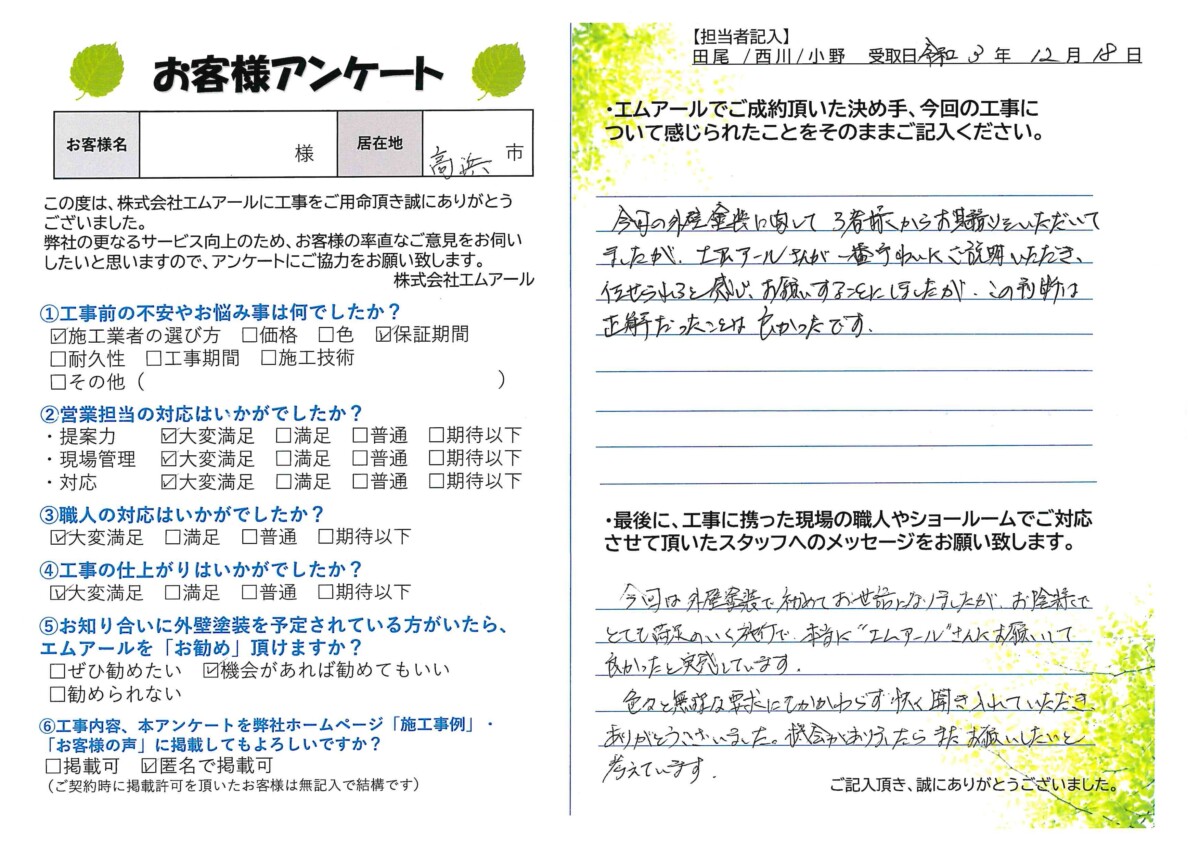 お客様アンケート
お客様名 様 居在地 高浜 市
この度は、株式会社エムアールに工事をご用命頂き誠にありがとう
ございました。
弊社の更なるサービス向上のため、お客様の率直なご意見をお伺い
したいと思いますので、アンケートにご協力をお願い致します。
株式会社エムアール
①工事前の不安やお悩み事は何でしたか？
☑施工業者の選び方 □価格 □色 ☑保証期間
□耐久性 □工事期間 □施工技術
□その他（ ）
②営業担当の対応はいかがでしたか？
・提案力 ☑大変満足 □満足 □普通 □期待以下
・現場管理 ☑大変満足 □満足 □普通 □期待以下
・対応 ☑大変満足 □満足 □普通 □期待以下
③職人の対応はいかがでしたか？
☑大変満足 □満足 □普通 □期待以下
④工事の仕上がりはいかがでしたか？
☑大変満足 □満足 □普通 □期待以下
⑤お知り合いに外壁塗装を予定されている方がいたら、
エムアールを「お勧め」頂けますか？
□ぜひ勧めたい ☑機会があれば勧めてもいい
□勧められない
⑥工事内容、本アンケートを弊社ホームページ「施工事例」・
「お客様の声」に掲載してもよろしいですか？
□掲載可 ☑匿名で掲載可
（ご契約時に掲載許可を頂いたお客様は無記入で結構です）
【担当者記入】
田尾 /西川/小野 受取日 令和 3 年 12 月 18 日
・エムアールでご成約頂いた決め手、今回の工事に
ついて感じられたことをそのままご記入ください。
今回の外壁塗装に関して 3者様からお見積りをいただいて
ましたが、エムアールさんが一番ていねいにご説明いただき、
任せられると感じ、お願いすることにしましたが、この判断は
正解だったことは良かったです.
・最後に、工事に携った現場の職人やショールームでご対応
させて頂いたスタッフへのメッセージをお願い致します。
今回は外壁塗装で初めてお世話になりましたが、お陰様で
とても満足のいく施行で、本当に"エムアール"さんにお願いして
良かったと実感しています.
色々と無理な要求にもかかわらず快く聞き入れていただき、
ありがとうございました。機会がありましたらまたお願いしたいと
考えています.
ご記入頂き、誠にありがとうございました。